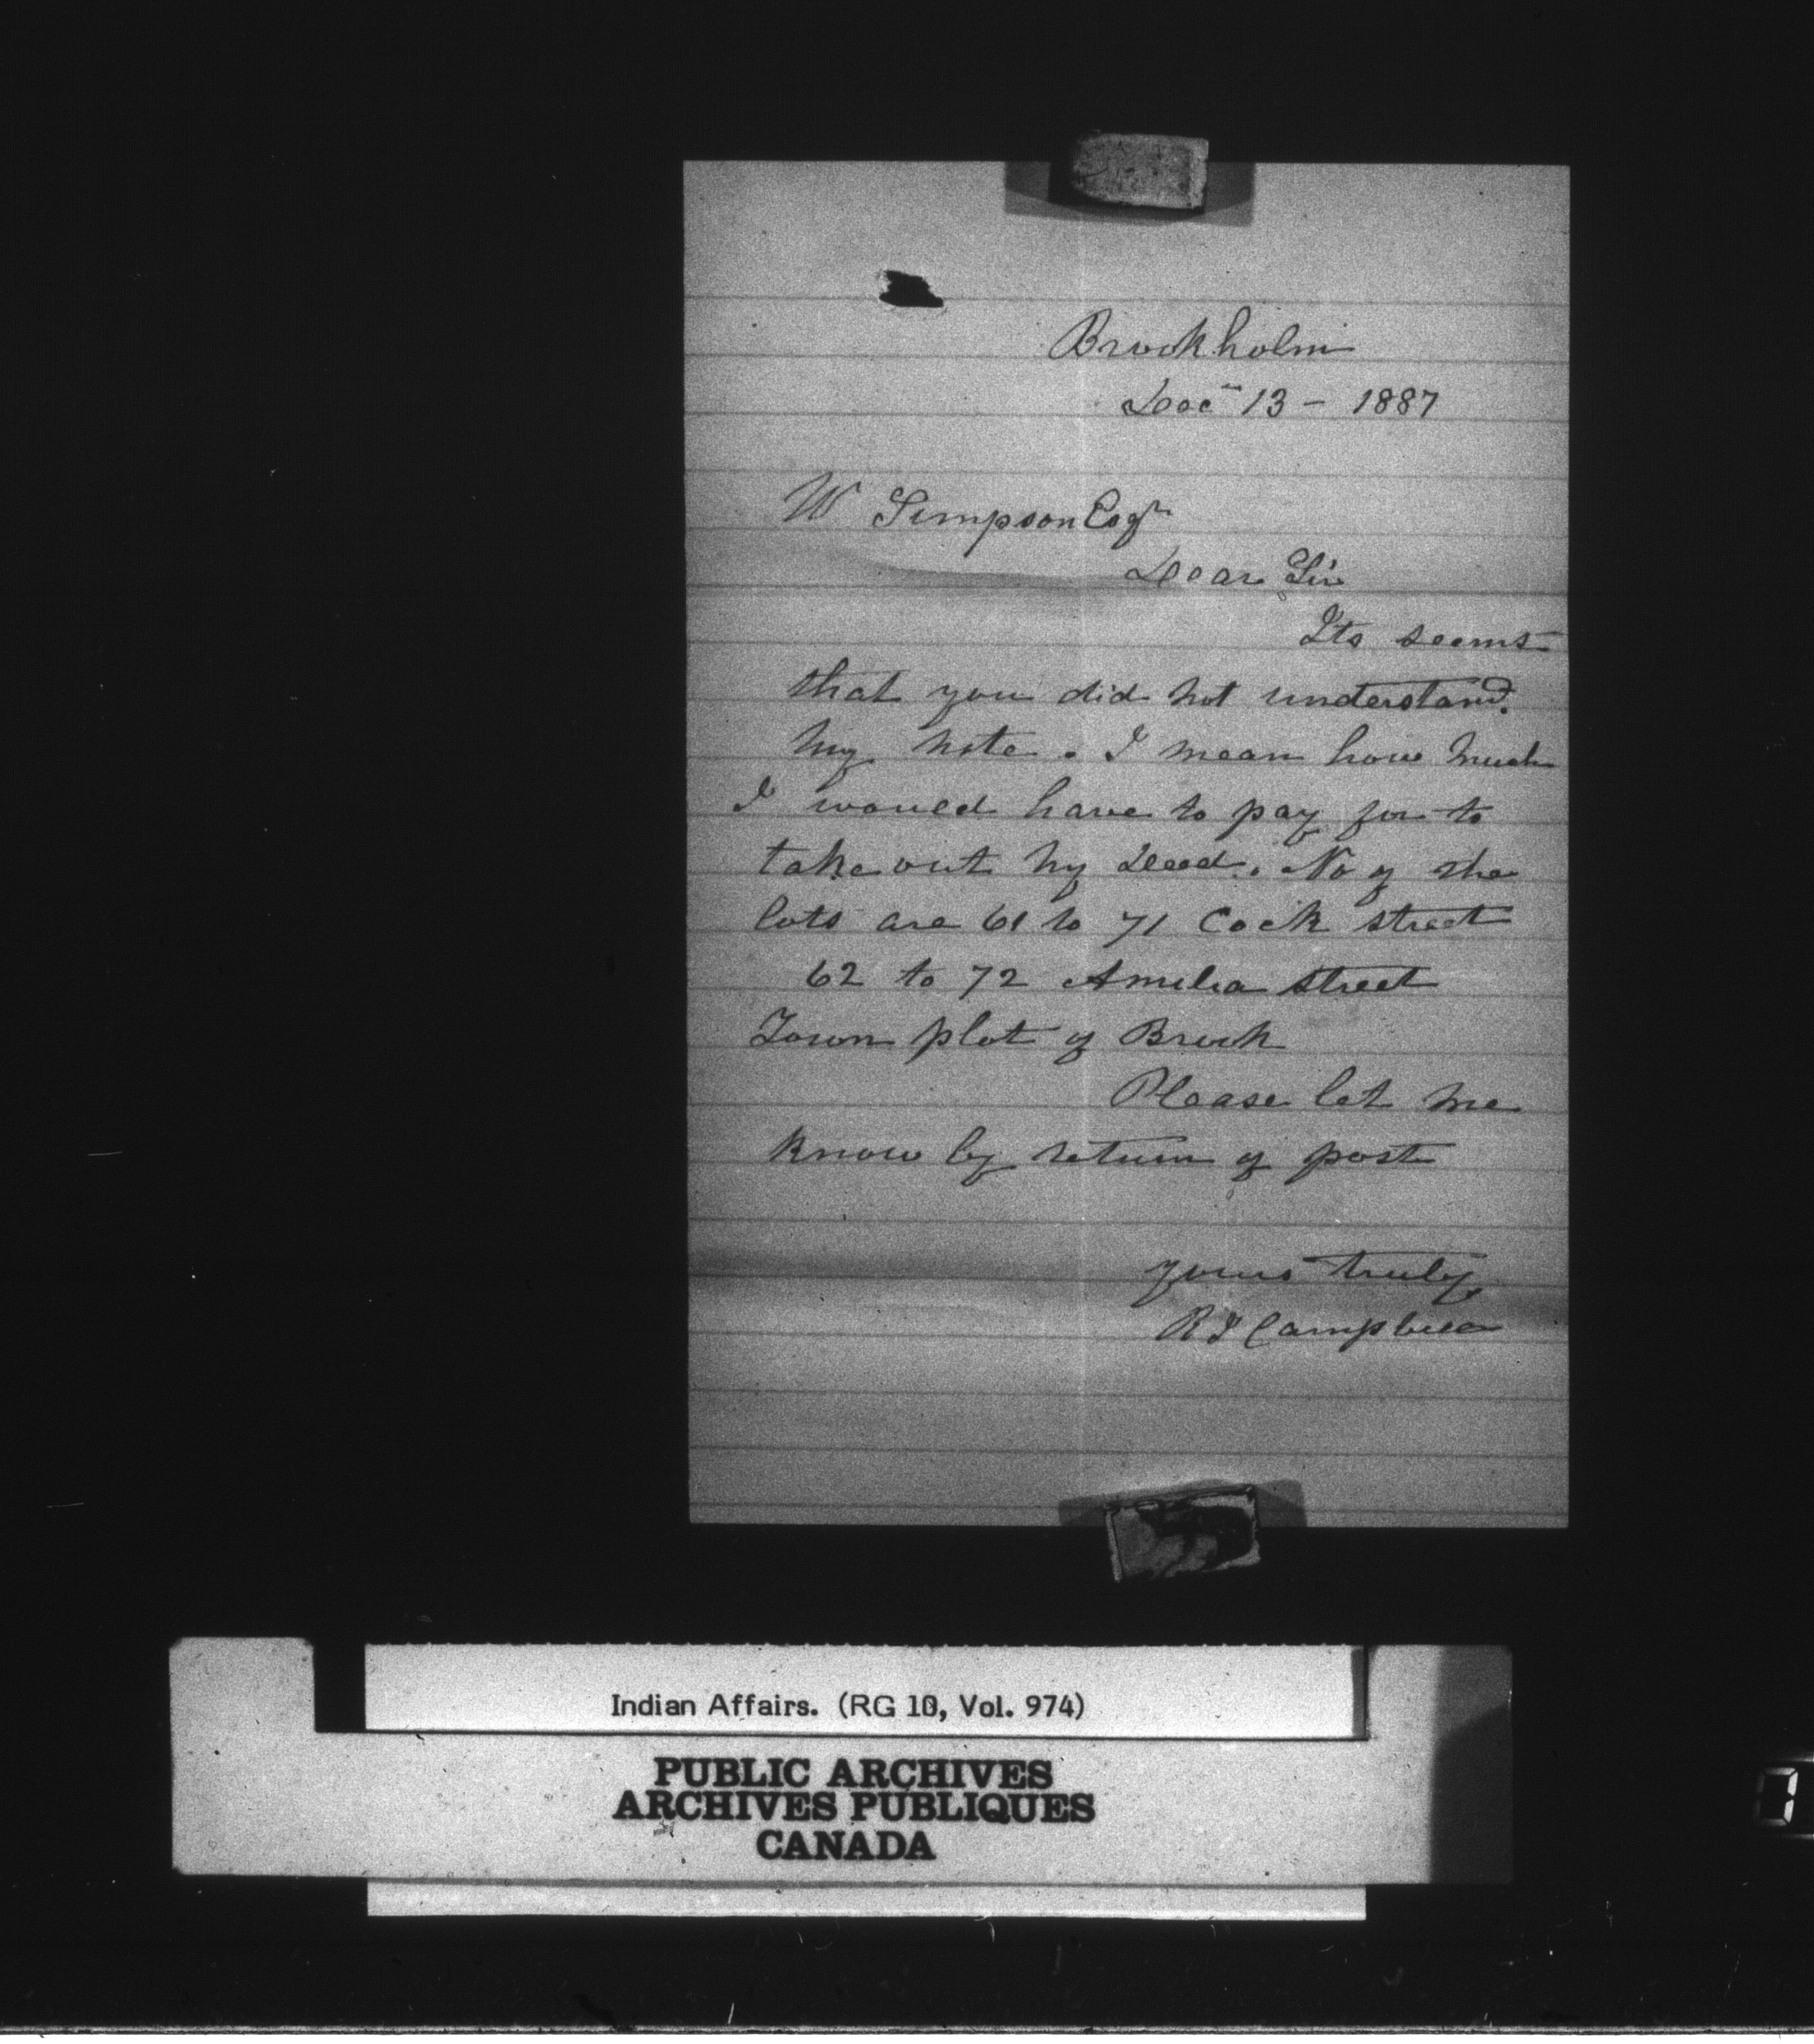 Brookholm
Dec 13 - 1887
W Simpson Esqr
Dear Sir
Its seems
that you did not understand.
my note. I mean how much
I would have to pay for to
take out my Deed. No of the
lots are 61 to 71 Cook street
62 to 72 Amelia street
Town plot of Brook
Please let me
know by return of post
yours truly
R J Campbell
Indian Affairs. (RG 10, Vol. 974)
PUBLIC ARCHIVES
ARCHIVES PUBLIQUES
CANADA